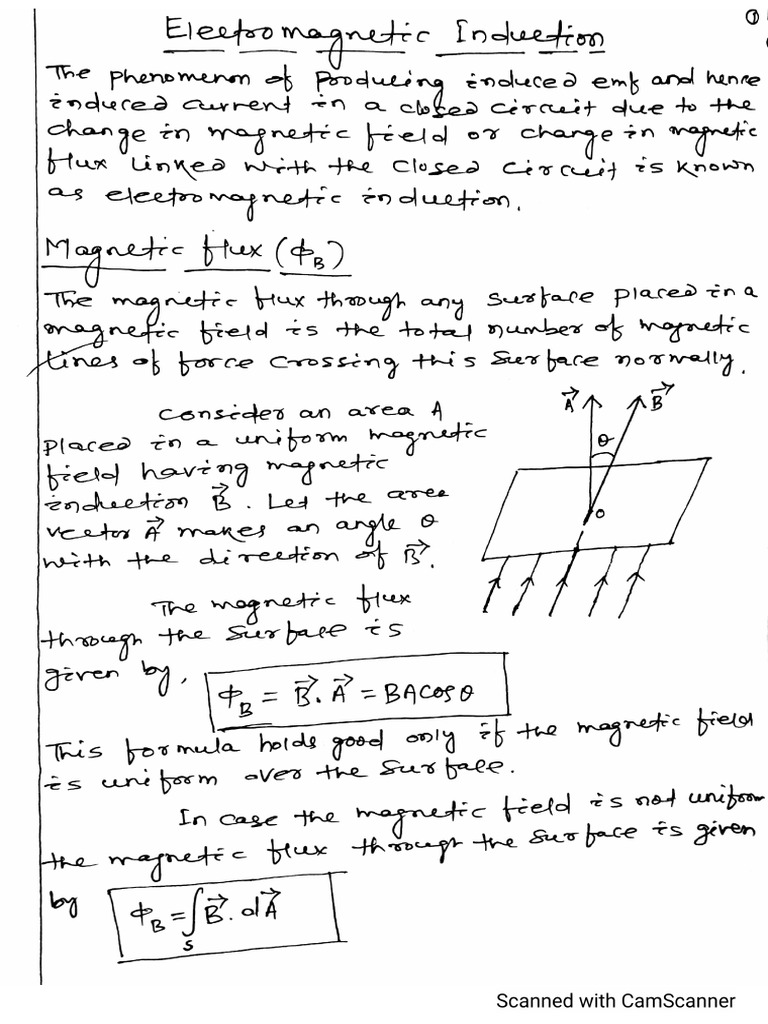 ①
Electromagnetic Induction
The phenomenon of producing induced emf and hence
induced current in a closed circuit due to the
change in magnetic field or change in magnetic
flux linked with the closed circuit is known
as electromagnetic induction.
Magnetic flux (ΦB)
The magnetic flux through any surface placed in a
magnetic field is the total number of magnetic
lines of force crossing this surface normally.
Consider an area A
placed in a uniform magnetic
field having magnetic
induction B⃗. Let the area
vector A⃗ makes an angle θ
with the direction of B⃗.
A⃗ B⃗
θ
O
The magnetic flux
through the surface is
given by, ΦB = B⃗. A⃗ = BA cosθ
This formula holds good only if the magnetic field
is uniform over the surface.
In case the magnetic field is not uniform
the magnetic flux through the surface is given
by ΦB = ∫S B⃗. dA⃗
Scanned with CamScanner